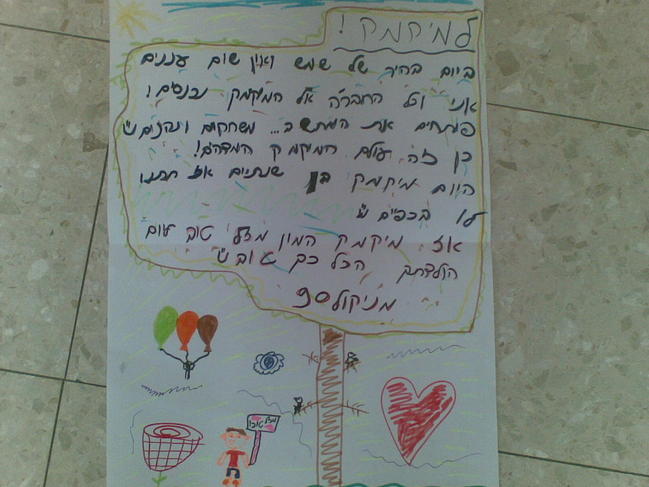 למיקמק!
ביום בהיר של שמש ואין שום עננים
אני וכל החברה אל המיקמק נכנסים!
פותחים את המחשב... משחקים ונהנים ש
כן זה עולם המיקמק המדהים!
היום מיקמק בן שנתיים אז תנו
לו בכפיים ש
אז מיקמק המון מזל טוב עום
הולדתך הכל כך טוב ש
מניקול90
מזל טוב!